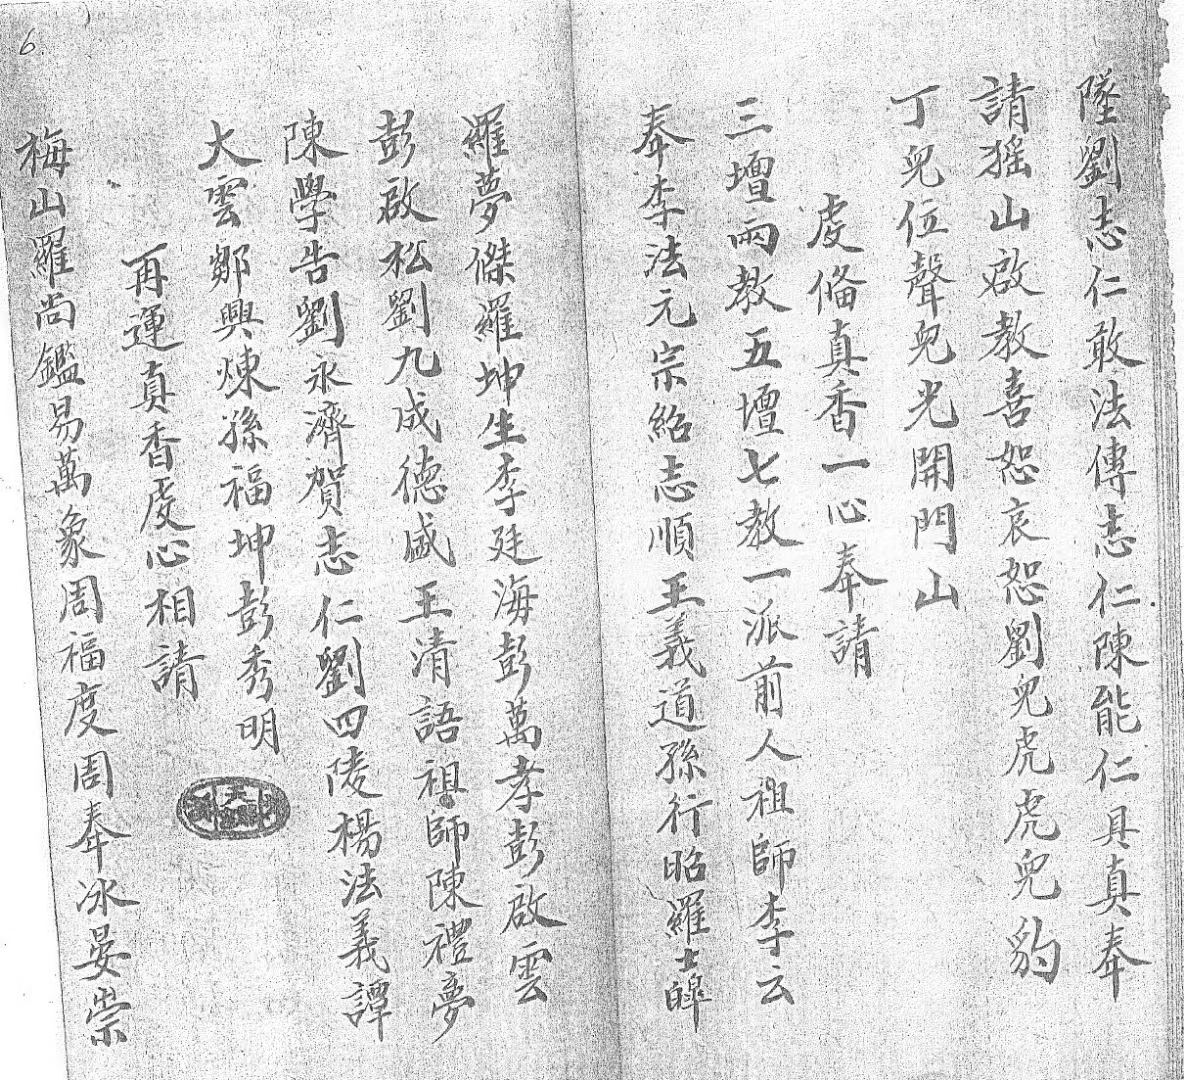 墜劉志仁敢法傳志仁陳能仁具真奉
請猺山啟教喜恕哀恕劉兒虎虎兒豹
丁兒位聲兒光開門山
虔俻真香一心奉請
三壇兩教五壇七教一派前人祖師李云
奉李法元宗紹志順王義道孫行昭羅士皞
羅夢傑羅坤生李廷海彭萬孝彭啟雲
彭啟松劉九成德威王清語祖師陳禮夢
陳學告劉永濟賀志仁劉四陵楊法義譚
大雲鄒興煉孫福坤彭秀明
再運真香虔心相請
梅山羅尚鑑易萬象周福度周奉冰晏崇
6